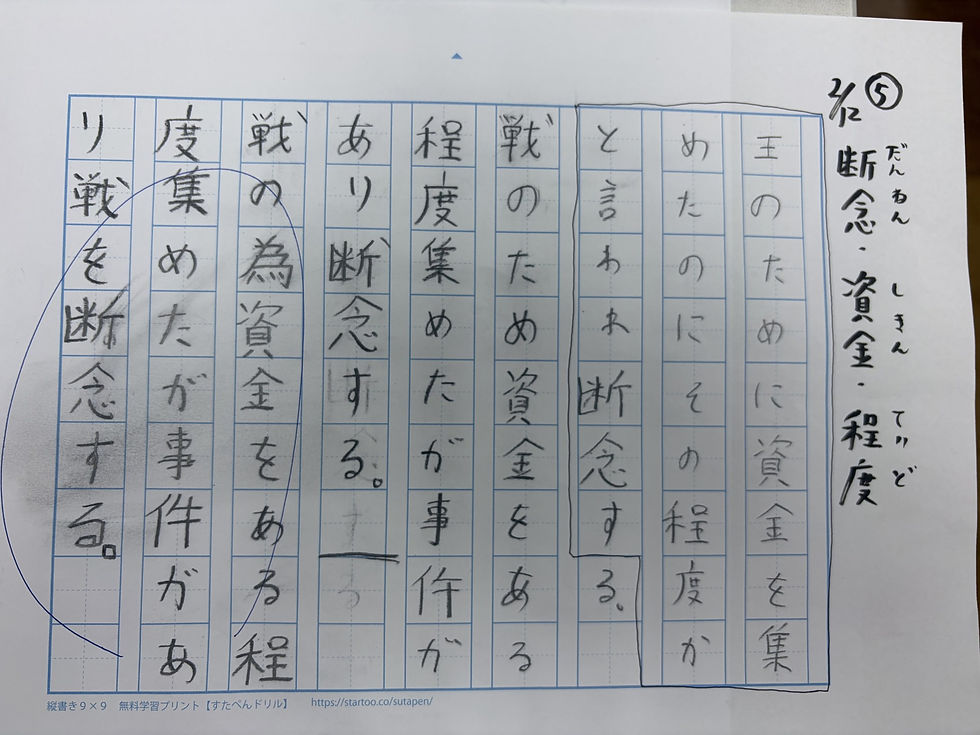 ⑤
2/12
だんねん しきん ていど
断念・資金・程度
王のために資金を集
めたのにその程度か
と言われ断念する、
戦のため資金をある
程度集めたが事件が
あり断念する。
戦の為資金をある程
度集めたが事件があ
り戦を断念する。
縦書き9×9 無料学習プリント【すたぺんドリル】 https://startoo.co/sutapen/